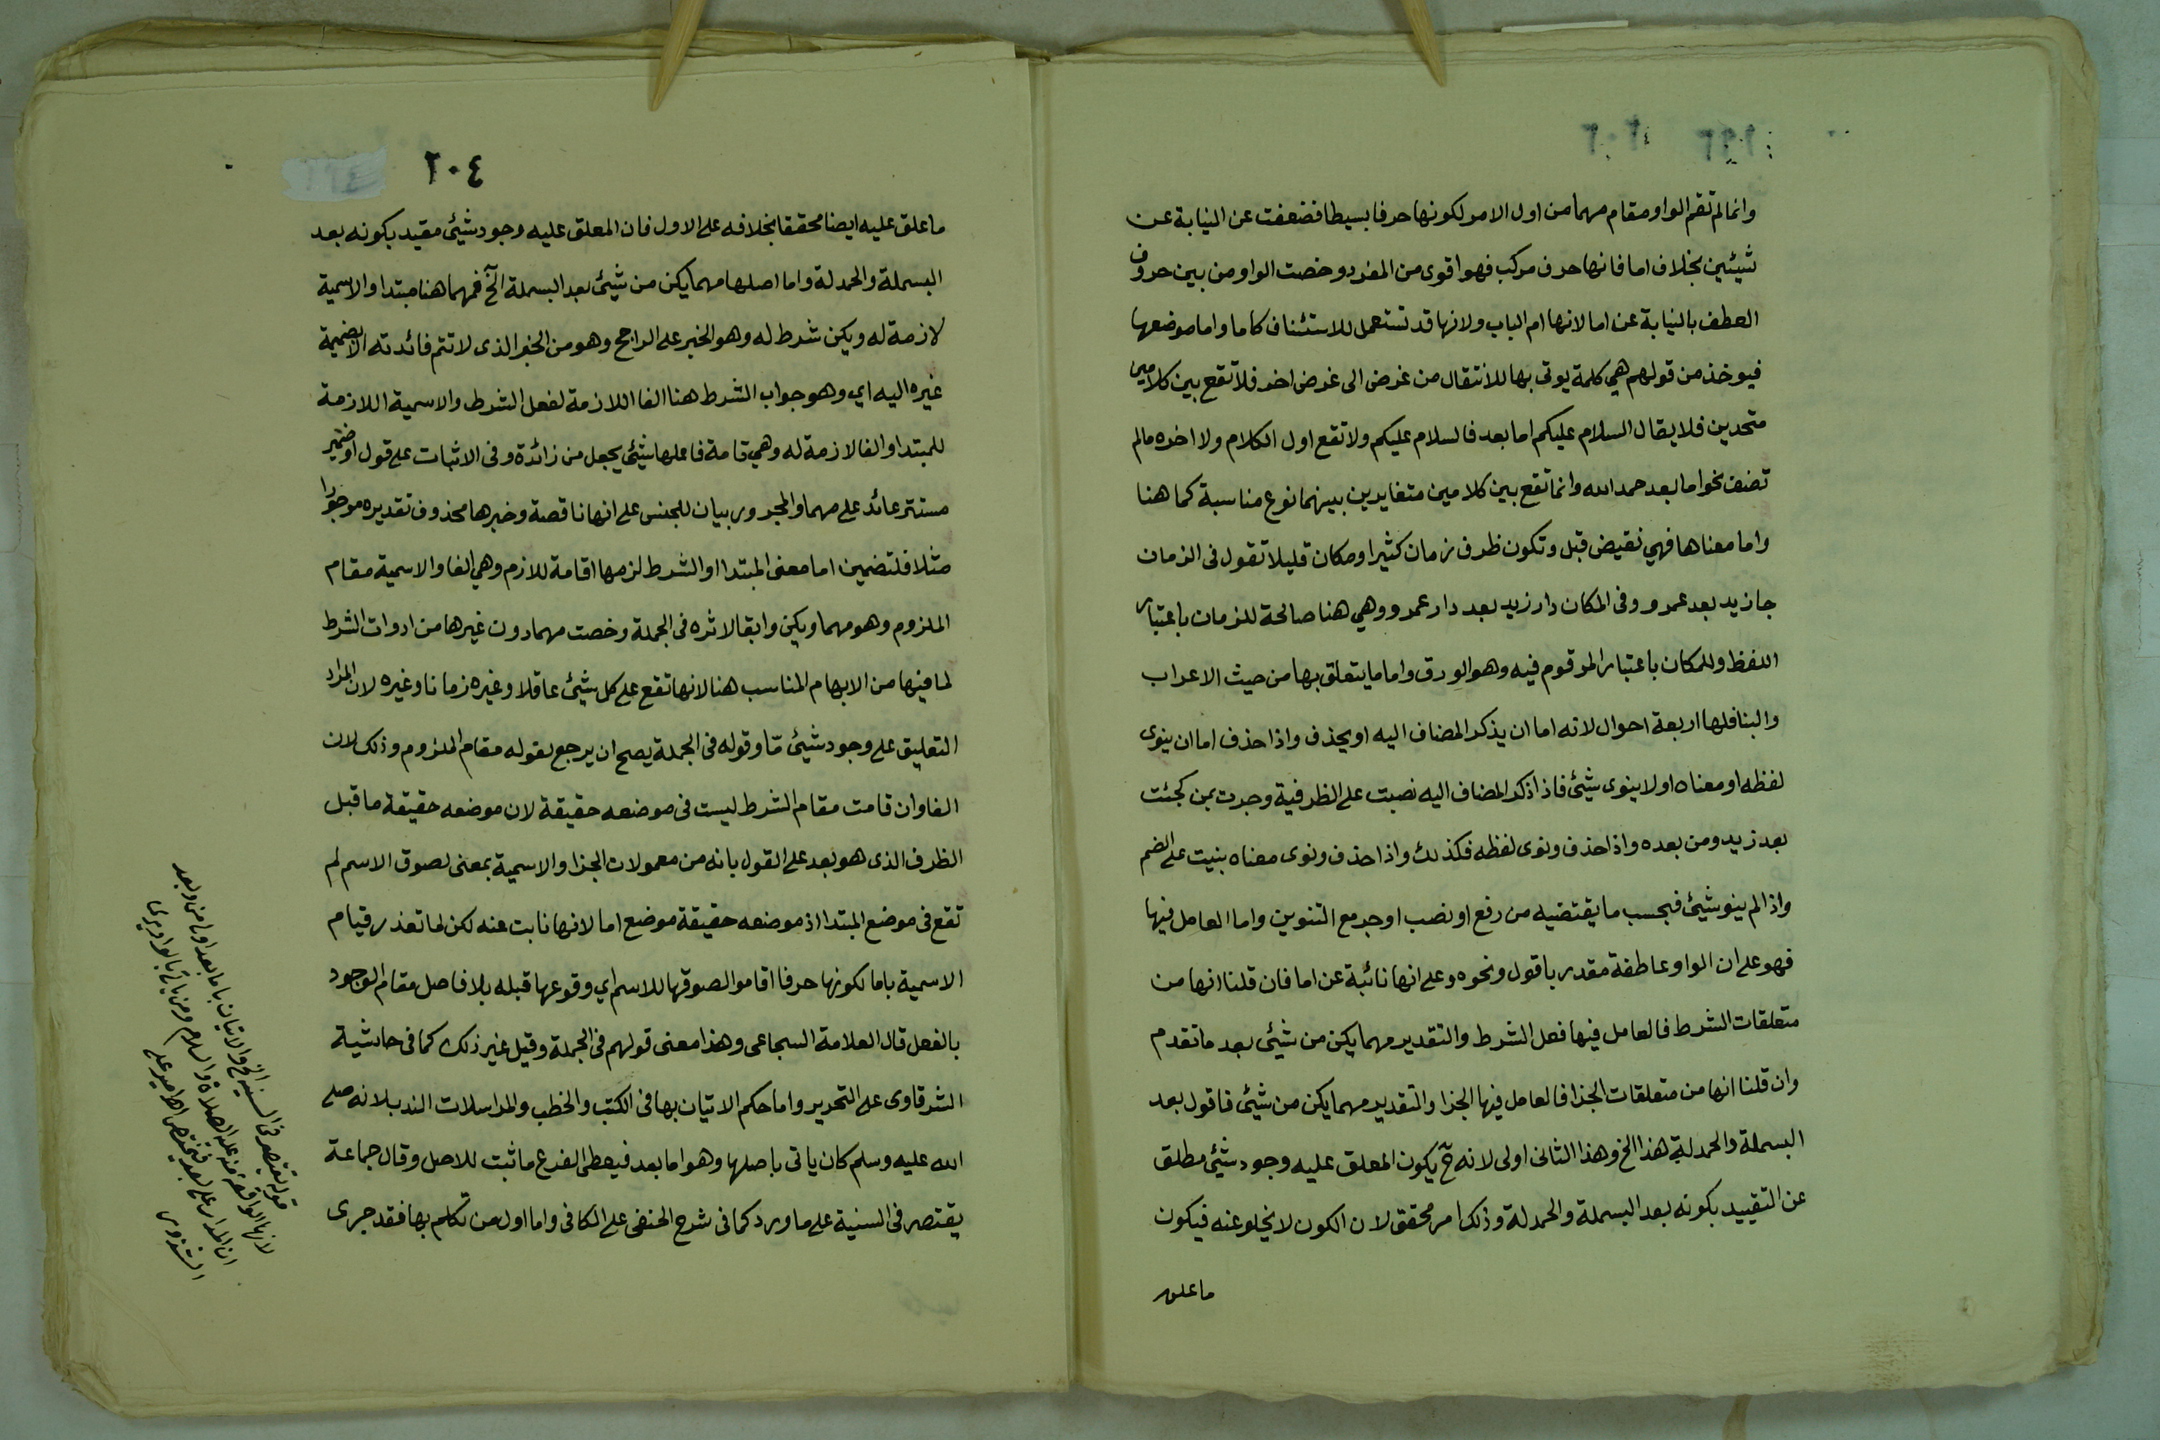 وانما لم تقم الواو مقام مهما من اول الامر لكونها حرفا بسيطا فضعفت عن النيابة عن
شيئين بخلاف اما فانها حرف مركب فهو اقوى من المفرد وخصت الواو من بين حروف
العطف بالنيابة عن اما لانها ام الباب ولانها قد تستعمل للاستئناف كاما واما موضعها
فيوخذ من قولهم هي كلمة يوتى بها للانتقال من غرض الى غرض اخر فلا تقع بين كلامين
متحدين فلا يقال السلام عليكم اما بعد فالسلام عليكم ولا تقع اول الكلام ولا اخره مالم
تضف نحو اما بعد حمد الله وانما تقع بين كلامين متغايرين بينهما نوع مناسبة كما هنا
واما معناها فهي نقيض قبل وتكون ظرف زمان كثيرا ومكان قليلا تقول فى الزمان
جا زيد بعد عمرو وفى المكان دار زيد بعد دار عمرو وهي هنا صالحة للزمان باعتبار
اللفظ وللمكان باعتبار المرقوم فيه وهو الورق واما ما يتعلق بها من حيث الاعراب
والبنا فلها اربعة احوال لانه اما ان يذكر المضاف اليه او يحذف واذا حذف اما ان ينوى
لفظه او معناه او لا ينوى شيئ فاذا ذكر المضاف اليه نصبت على الظرفية وجرت بمن كجئت
بعد زيد ومن بعده واذا حذف ونوى لفظه فكذلك واذا حذف ونوى معناه بنيت على الضم
واذا لم ينو شيئ فبحسب ما يقتضيه من رفع او نصب او جر مع التنوين واما العامل فيها
فهو على ان الواو عاطفة مقدر باقول ونحوه وعلى انها نائبة عن اما فان قلنا انها من
متعلقات الشرط فالعامل فيها فعل الشرط والتقدير مهما يكن من شيئ بعد ما تقدم
وان قلنا انها من متعلقات الجزا فالعامل فيها الجزا والتقدير مهما يكن من شيئ فاقول بعد
البسملة والحمدلة هذا الخ وهذا الثانى اولى لانه ح يكون المعلق عليه وجود شيئ مطلق
عن التقييد بكونه بعد البسملة والحمدلة وذلك امر محقق لان الكون لا يخلو عنه فيكون
ما علق
٢٠٤
ما علق عليه ايضا محققا بخلافه على الاول فان المعلق عليه وجود شيئ مقيد بكونه بعد
البسملة والحمدلة واما اصلها مهما يكن من شيئ بعد البسملة الخ فمهما هنا مبتدا والاسمية
لازمة له ويكن شرط له وهو الخبر على الراجح وهو من الخبر الذى لا تتم فائدته الا بضميمة
غيره اليه اي وهو جواب الشرط هنا الفا اللازمة لفعل الشرط والاسمية اللازمة
للمبتدا والفا لازمة له وهي تامة فاعلها شيئ بجعل من زائدة وفى الاثبات على قول او ضمير
مستتر عائد على مهما والمجرور بيان للجنس على انها ناقصة وخبرها محذوف تقديره موجودا
مثلا فلتضمين اما معنى المبتدا او الشرط لزمها اقامة للازم وهي الفا والاسمية مقام
الملزوم وهو مهما ويكن وابقا لاثره فى الجملة وخصت مهما دون غيرها من ادوات الشرط
لما فيها من الابهام المناسب هنا لانها تقع على كل شيئ عاقلا وغيره زمانا وغيره لان المراد
التعليق على وجود شيئ مّا وقوله فى الجملة يصح ان يرجع لقوله مقام الملزوم وذلك لان
الفا وان قامت مقام الشرط ليست فى موضعه حقيقة لان موضعه حقيقة ما قبل
الظرف الذى هو بعد على القول بانه من معمولات الجزا والاسمية بمعنى لصوق الاسم لم
تقع فى موضع المبتدا اذ موضعه حقيقة موضع اما لانها نابت عنه لكن لما تعذر قيام
الاسمية باما لكونها حرفا اقاموا لصوقها للاسم اي وقوعها قبله بلا فاصل مقام الوجود
بالفعل قال العلامة السجاعى وهذا معنى قولهم فى الجملة وقيل غير ذلك كما فى حاشية
الشرقاوى على التحرير واما حكم الاتيان بها فى الكتب والخطب والمراسلات الندب لانه صلى
الله عليه وسلم كان ياتى باصلها وهو اما بعد فيعطى الفرع ما ثبت للاصل وقال جماعة
يقتصر فى السنية على ما ورد كما فى شرح الحنفى على الكافى واما اول من تكلم بها فقد جرى
قوله يقتصر فى السنية الخ والاتيان باما بعد اولى من وبعد
لانها الواقعة منه عليه الصلاة والسلام ومن ياتى بالواو يرى
ان المدار على بعد فيختص